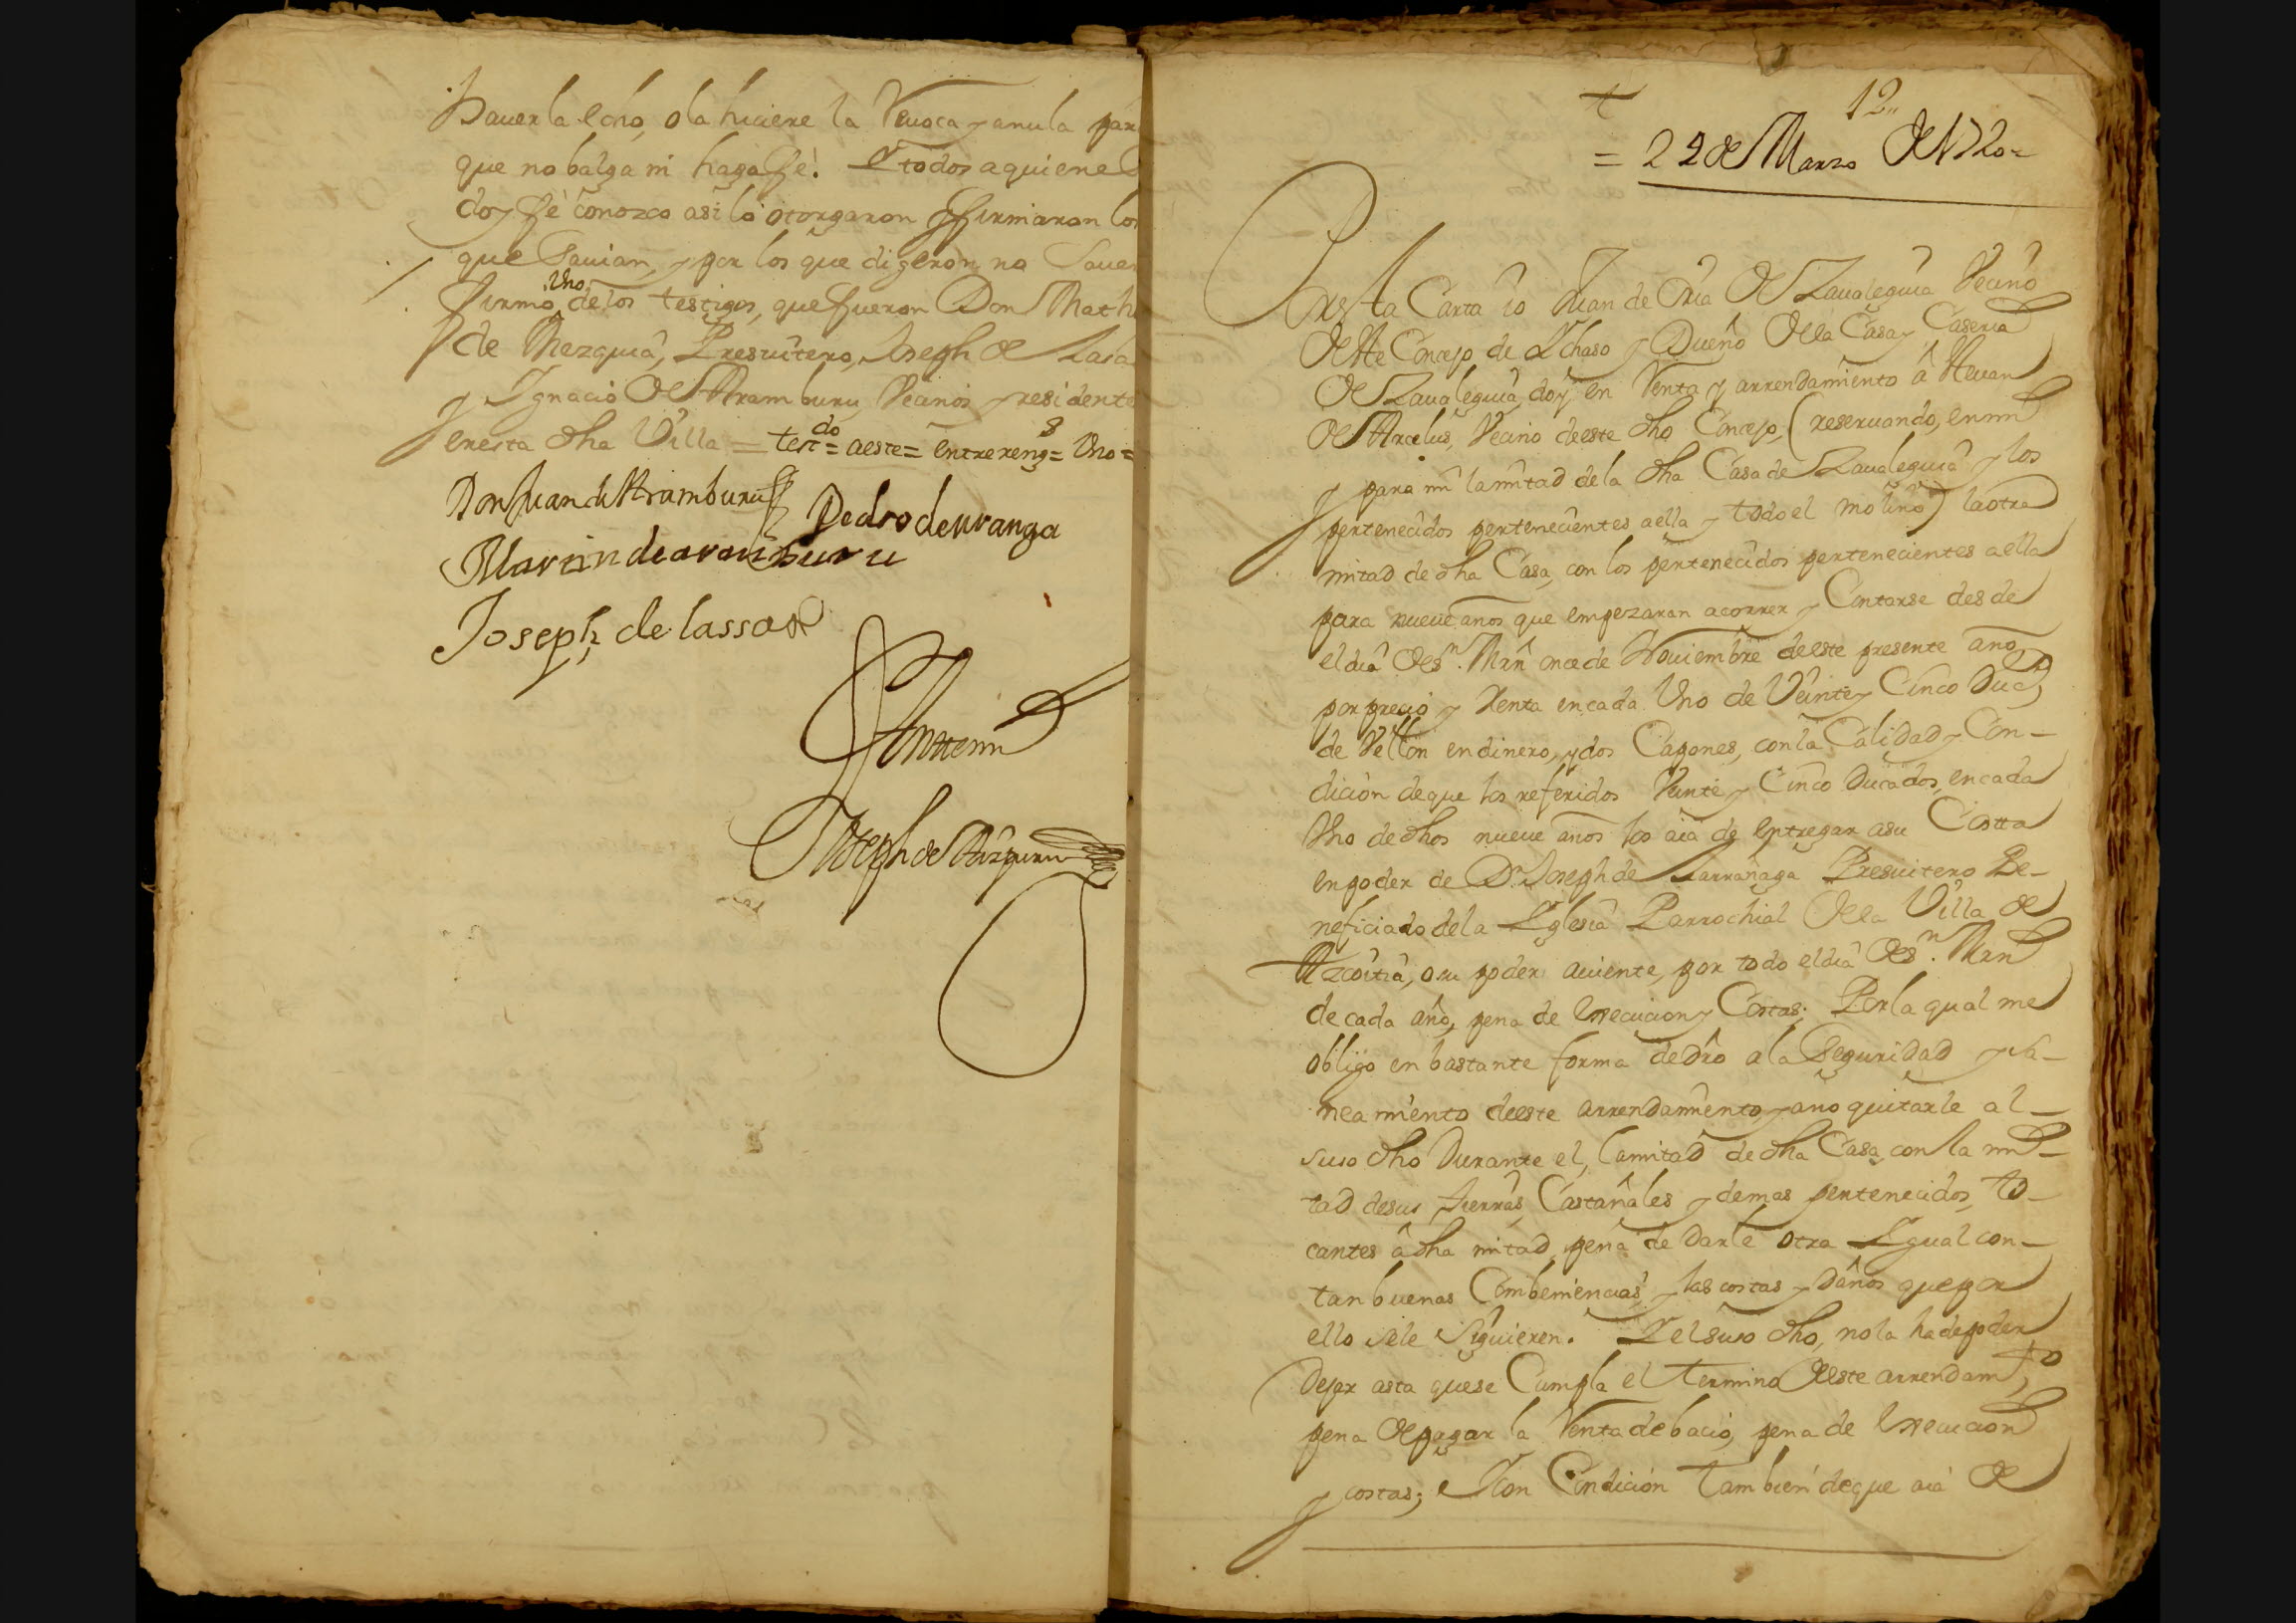 Hauerla echo, o la hiciere la Reuoca y anula par
que no balga ni haga fe. Y todos a quienes
doy fè conozco asi lo otorgaron y firmaron los
que Sauian, y por los que digeron no Sauer
firmò Uno de los testigos, que fueron Don Math
de Mezquia, Presuitero, Joseph de Lasa
y Ygnacio de Aramburu Vecinos y residente
en esta dha Villa = testdo = a este = entrerengs = Uno =
Don Juan de Aramburu Pedro de uranga
Martin de aramburu
Joseph de lassa
Antemi
Joseph de Aizpuru
12
= 22 de Marzo de 1720 =
Por esta Carta io Juan de Oria de Zaualeguia Vecino
de este Concejo de Ychaso y Dueño de la Casa y Caseria
de Zaualeguia, doy en Renta y arrendamiento â Steuan
de Arcelus, Vecino de este dho Concejo, (reseruando, en mi
y para mi la mitad de la dha Casa de Zaualeguia y los
pertenecidos pertenecientes a ella y todo el molino) la otra
mitad de dha Casa, con los pertenecidos pertenecientes a ella
para nueue años que empezaran a correr y Contarse desde
el dia de Sn. Mrn once de Nouiembre de este presente año,
por precio y Renta en cada Uno de Veinte y Cinco Ducs
de Vellon en dinero, y dos Capones, con la Calidad y Con-
dicion de que los referidos Veinte y Cinco Ducados, en cada
Uno de dhos nueue años los aia de entregar a su Costta
en poder de Dn. Joseph de Larrañaga Presuitero Be-
neficiado de la Yglesia Parrochial de la Villa de
Azcoitia, o su poder auiente, por todo el dia de Sn. Mrn
de cada año, pena de execucion y Costas; Por la qual me
obligo en bastante forma de dro a la Seguridad y sa-
neamiento de este arrendamiento, y a no quitarle al
suso dho Durante el, la mitad de dha Casa, con la mi-
tad de sus tierras Castañales y demas pertenecidos, to-
cantes â dha mitad, pena de darle otra Ygual con
tan buenas Combeniencias, y las costas y daños que por
ello se le siguieren. Y el suso dho, no la ha de poder
Dejar asta que se Cumpla el termino de este arrendamto,
pena de pagar la Renta de bacio, pena de execucion
y costas; Y con Condicion tambien de que aia de